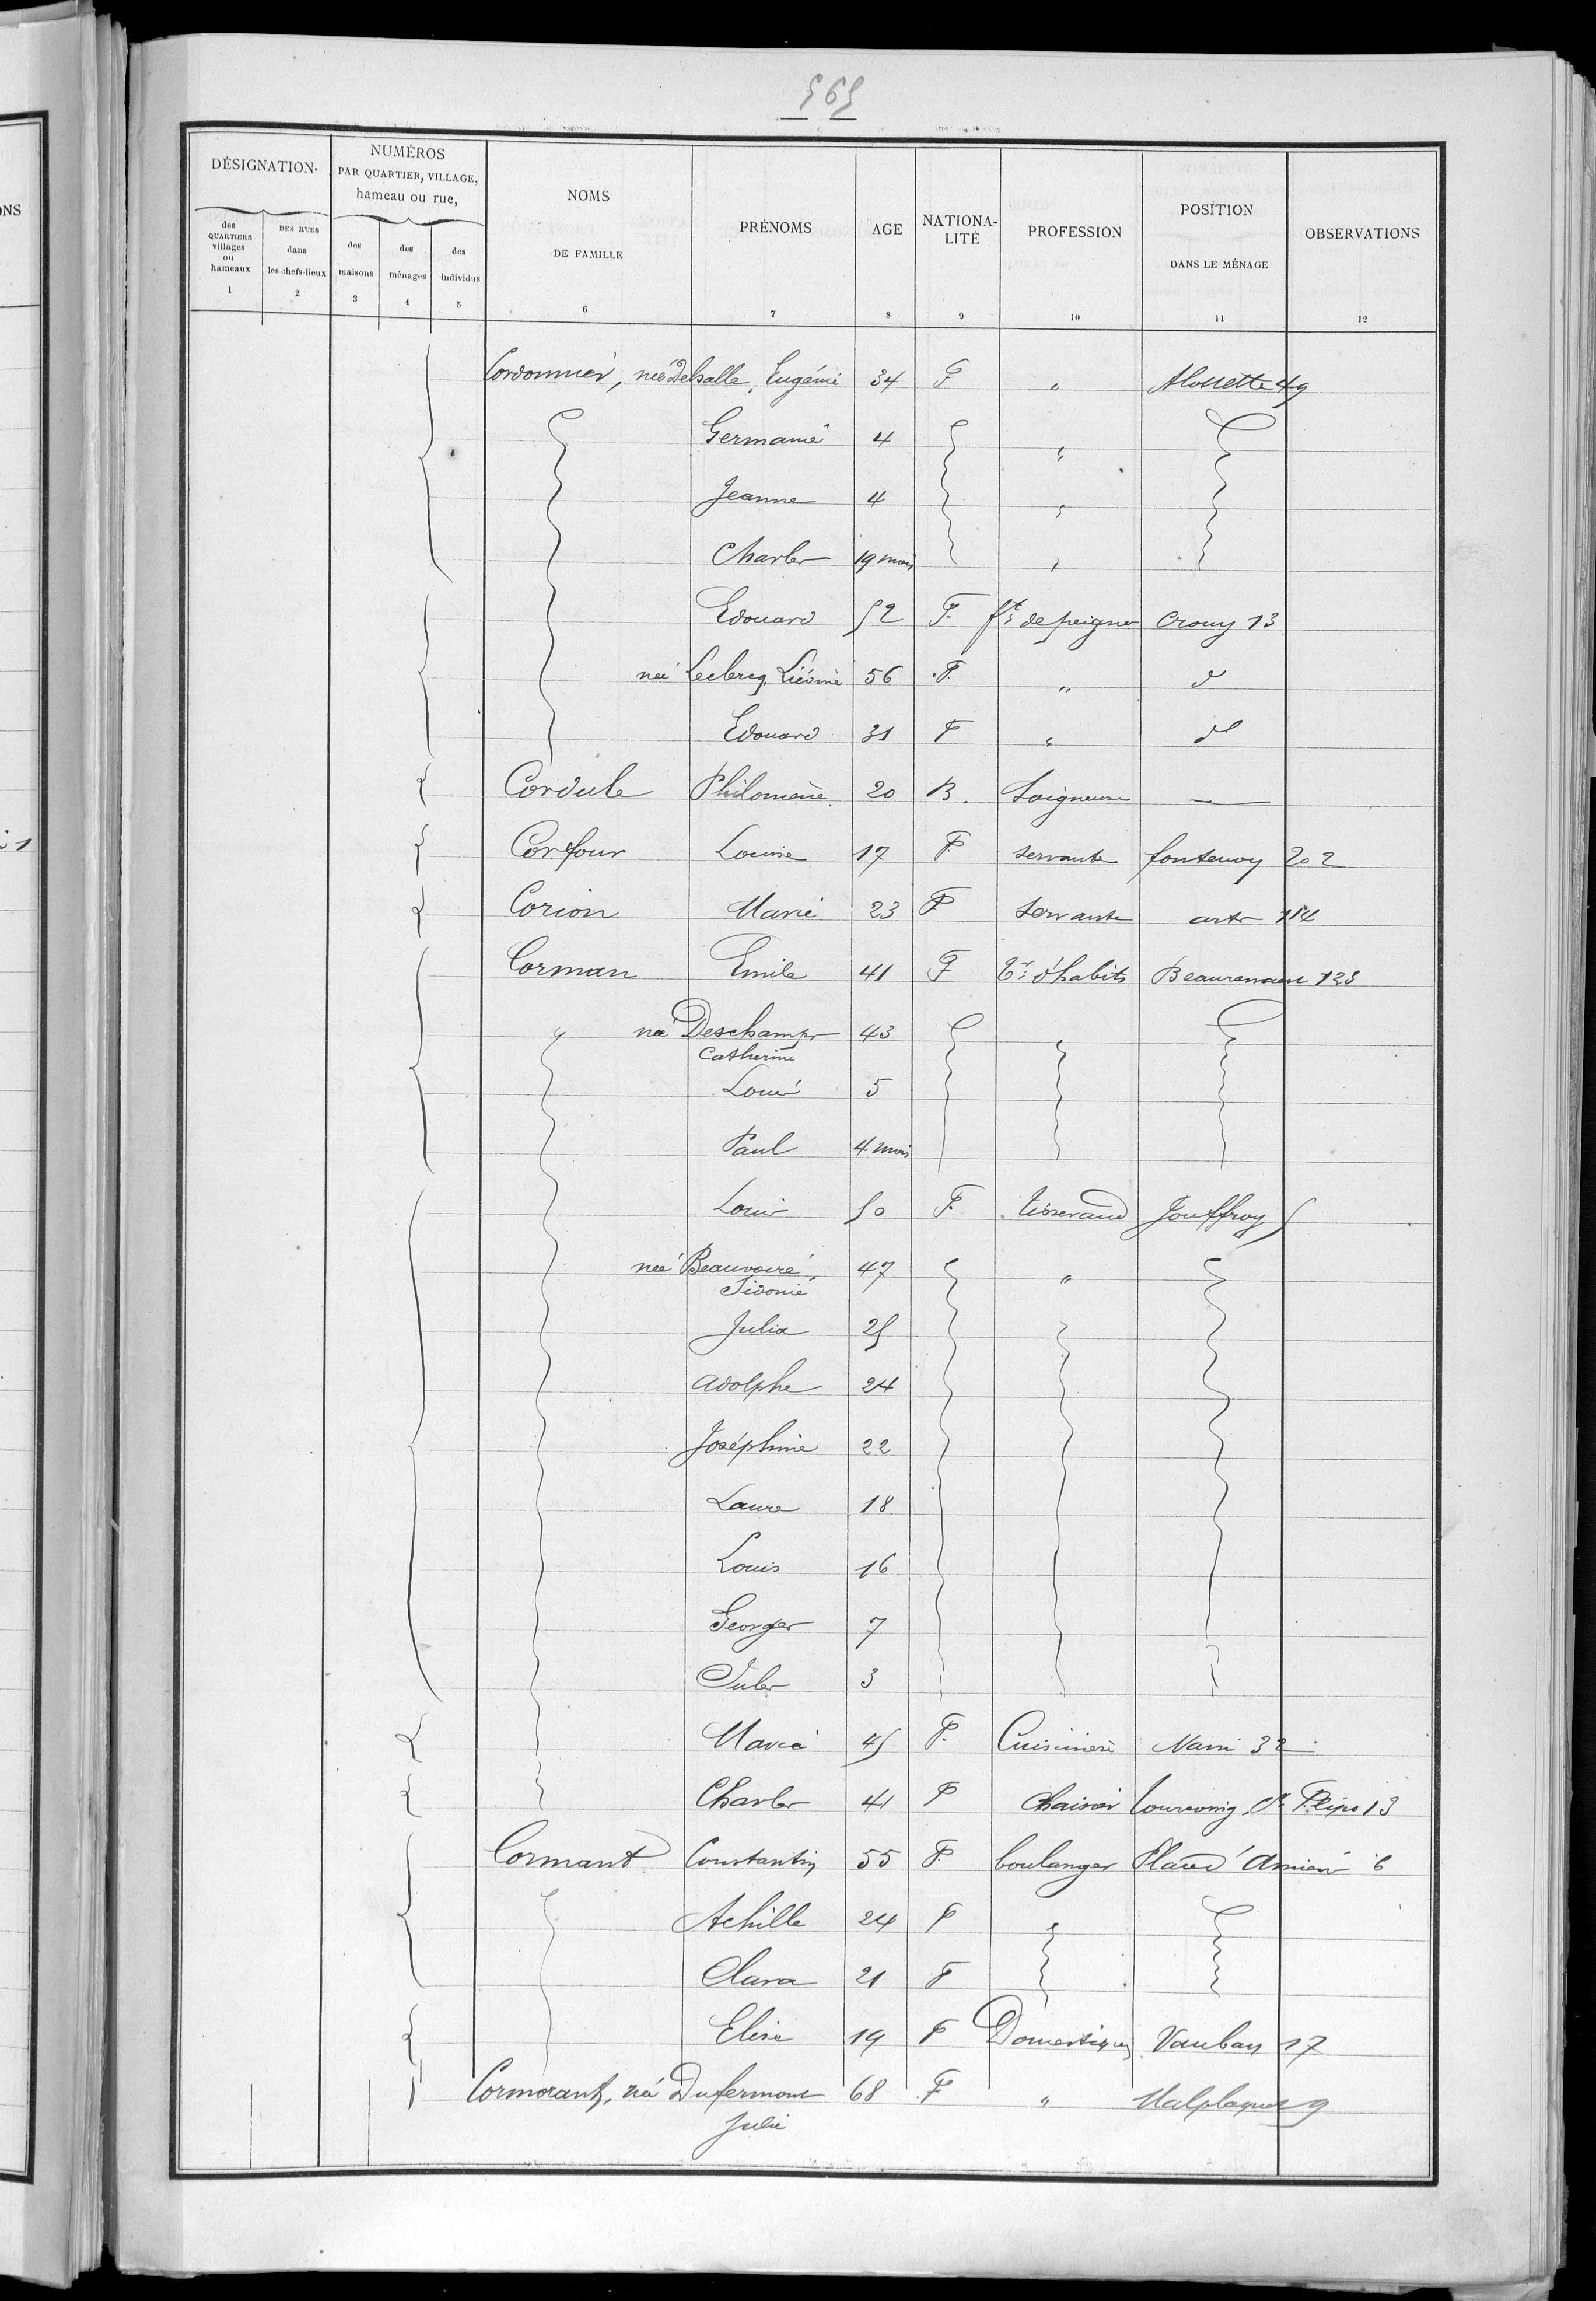 565
DÉSIGNATION
NUMÉROS
PAR QUARTIER, VILLAGE,
hameau ou rue,
NOMS
DE FAMILLE
PRÉNOMS
AGE
NATIONA-
LITÉ
PROFESSION
POSITION
DANS LE MÉNAGE
OBSERVATIONS
des QUARTIERS villages ou hameaux
DES RUES dans les chefs-lieux
des maisons
des ménages
des individus
1 2 3 4 5 6 7 8 9 10 11 12
Cordonnier, née Delsalle, Eugénie 34 F " Alouette 49
Germaine 4 "
Jeanne 4 "
Charles 19 mois "
Edouard 52 F. ft de peignes Crouy 13
née Leclercq Liévine 56 F. " d
Edouard 31 F " d
Cordule Philomène 20 B. Soigneuse —
Corfour Louise 17 F servante fontenoy 202
Corion Marie 23 F Servante arts 114
Corman Emile 41 F d'habits Beaurewaert 123
" née Deschamps 43 "
Catherine
Louis 5
Paul 4 mois
Louis 50 F. tisserand Jouffroy 5
née Beauvoiré 47 "
Sidonie
Julia 25
Adolphe 24
Joséphine 22
Laure 18
Louis 16
Georges 7
Jules 3
Marie 45 F. Cuisinière Nain 32
Charles 41 F Chaisier tourcoing, Flipo 13
Cormant Constantin 55 F. boulanger Place d'Amiens 6
Achille 24 F "
Clara 21 F
Elise 19 F Domestique Vauban 17
Cormorant, née Dufermont 68 F " Malplaquet 9
Julie